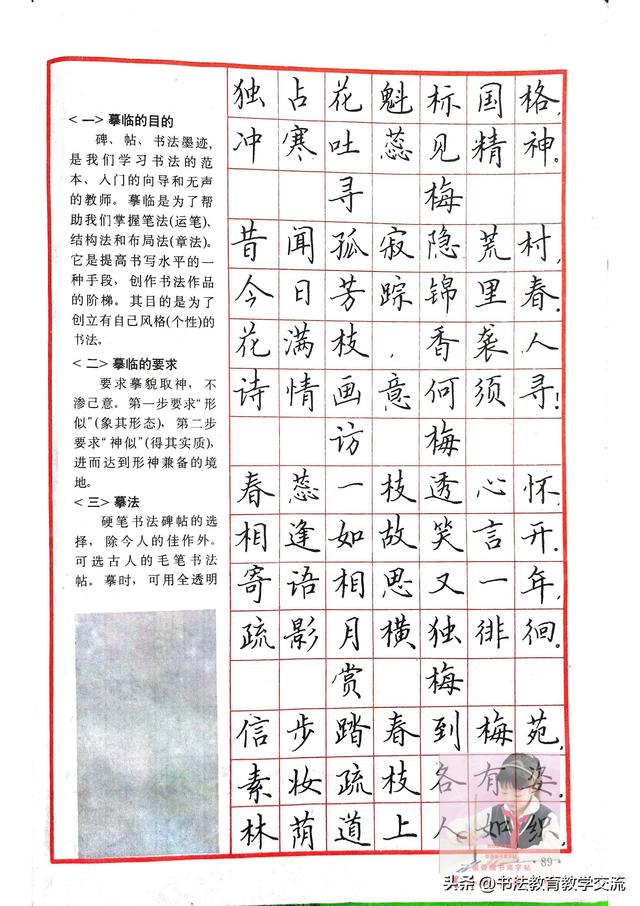 <一>摹临的目的
碑、帖、书法墨迹,
是我们学习书法的范
本、人门的向导和无声
的教师。摹临是为了帮
助我们掌握笔法(运笔)、
结构法和布局法(章法)。
它是提高书写水平的一
种手段,创作书法作品
的阶梯。其目的是为了
创立有自己风格(个性)的
书法。
<二>摹临的要求
要求摹貌取神,不
渗己意。第一步要求“形
似”(象其形态),第二步
要求“神似”(得其实质),
进而达到形神兼备的境
地。
<三>摹法
硬笔书法碑帖的选
择,除今人的佳作外。
可选古人的毛笔书法
帖。摹时,可用全透明
独占花魁标国格,
冲寒吐蕊见精神。
寻梅
昔闻孤寂隐荒村,
今日芳踪锦里春。
花满枝,香袭人
诗情画意何须寻!
访梅
春蕊一枝透心怀,
相逢如故笑言开。
寄语相思又一年,
疏影月横独徘徊。
赏梅
信步踏春到梅苑,
素妆疏枝各有姿。
林荫道上人如织,
·89·
头条@书法教育教学交流